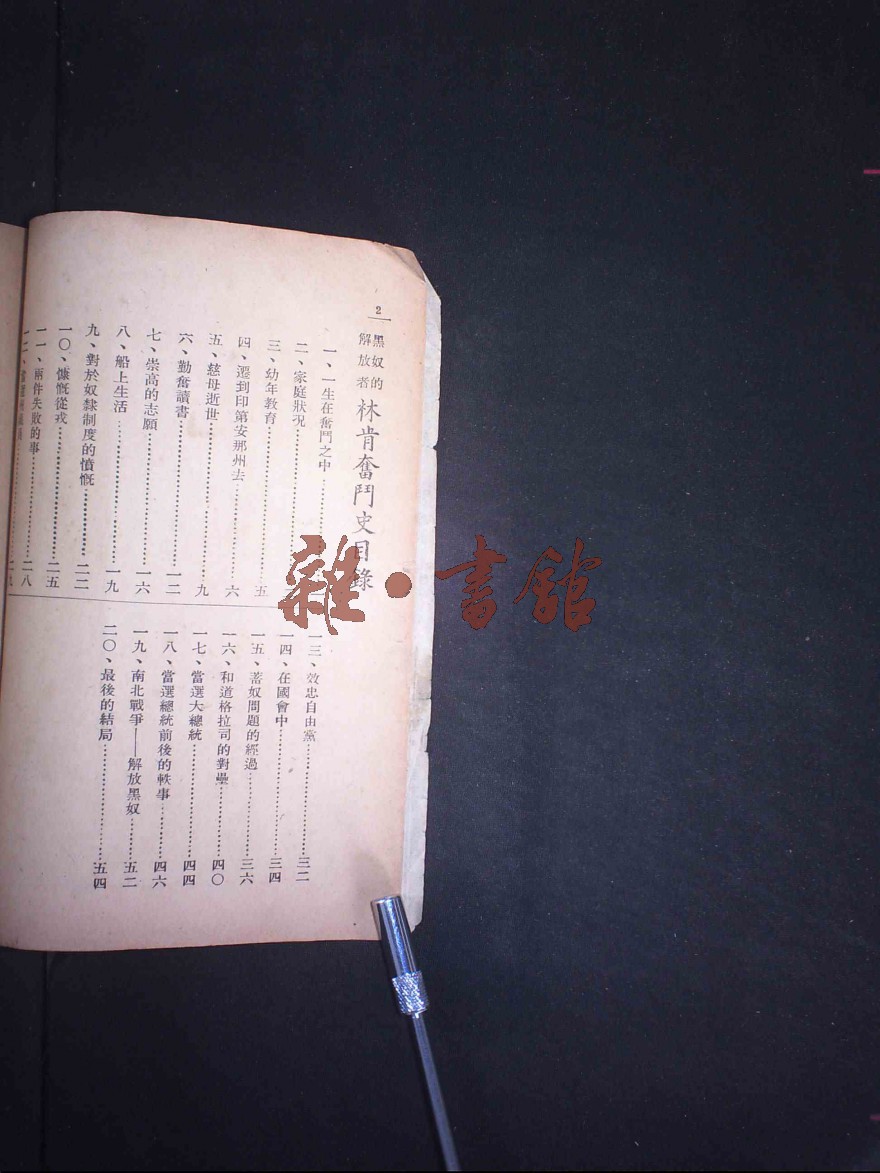 2
黑奴的
解放者
林肯奮鬥史目錄
一、一生在奮鬥之中
二、家庭狀況
三、幼年教育……五
四、遷到印第安那州去……六
五、慈母逝世……九
六、勤奮讀書……一二
七、崇高的志願……一六
八、船上生活……一九
九、對於奴隸制度的憤慨……二二
一〇、慷慨從戎……二五
一一、兩件失敗的事……二八
一二、
一三、效忠自由黨……三二
一四、在國會中……三四
一五、蓄奴問題的經過……三六
一六、和道格拉司的對壘……四〇
一七、當選大總統……四四
一八、當選總統前後的軼事……四六
一九、南北戰爭——解放黑奴……五二
二〇、最後的結局……五四
雜·書館